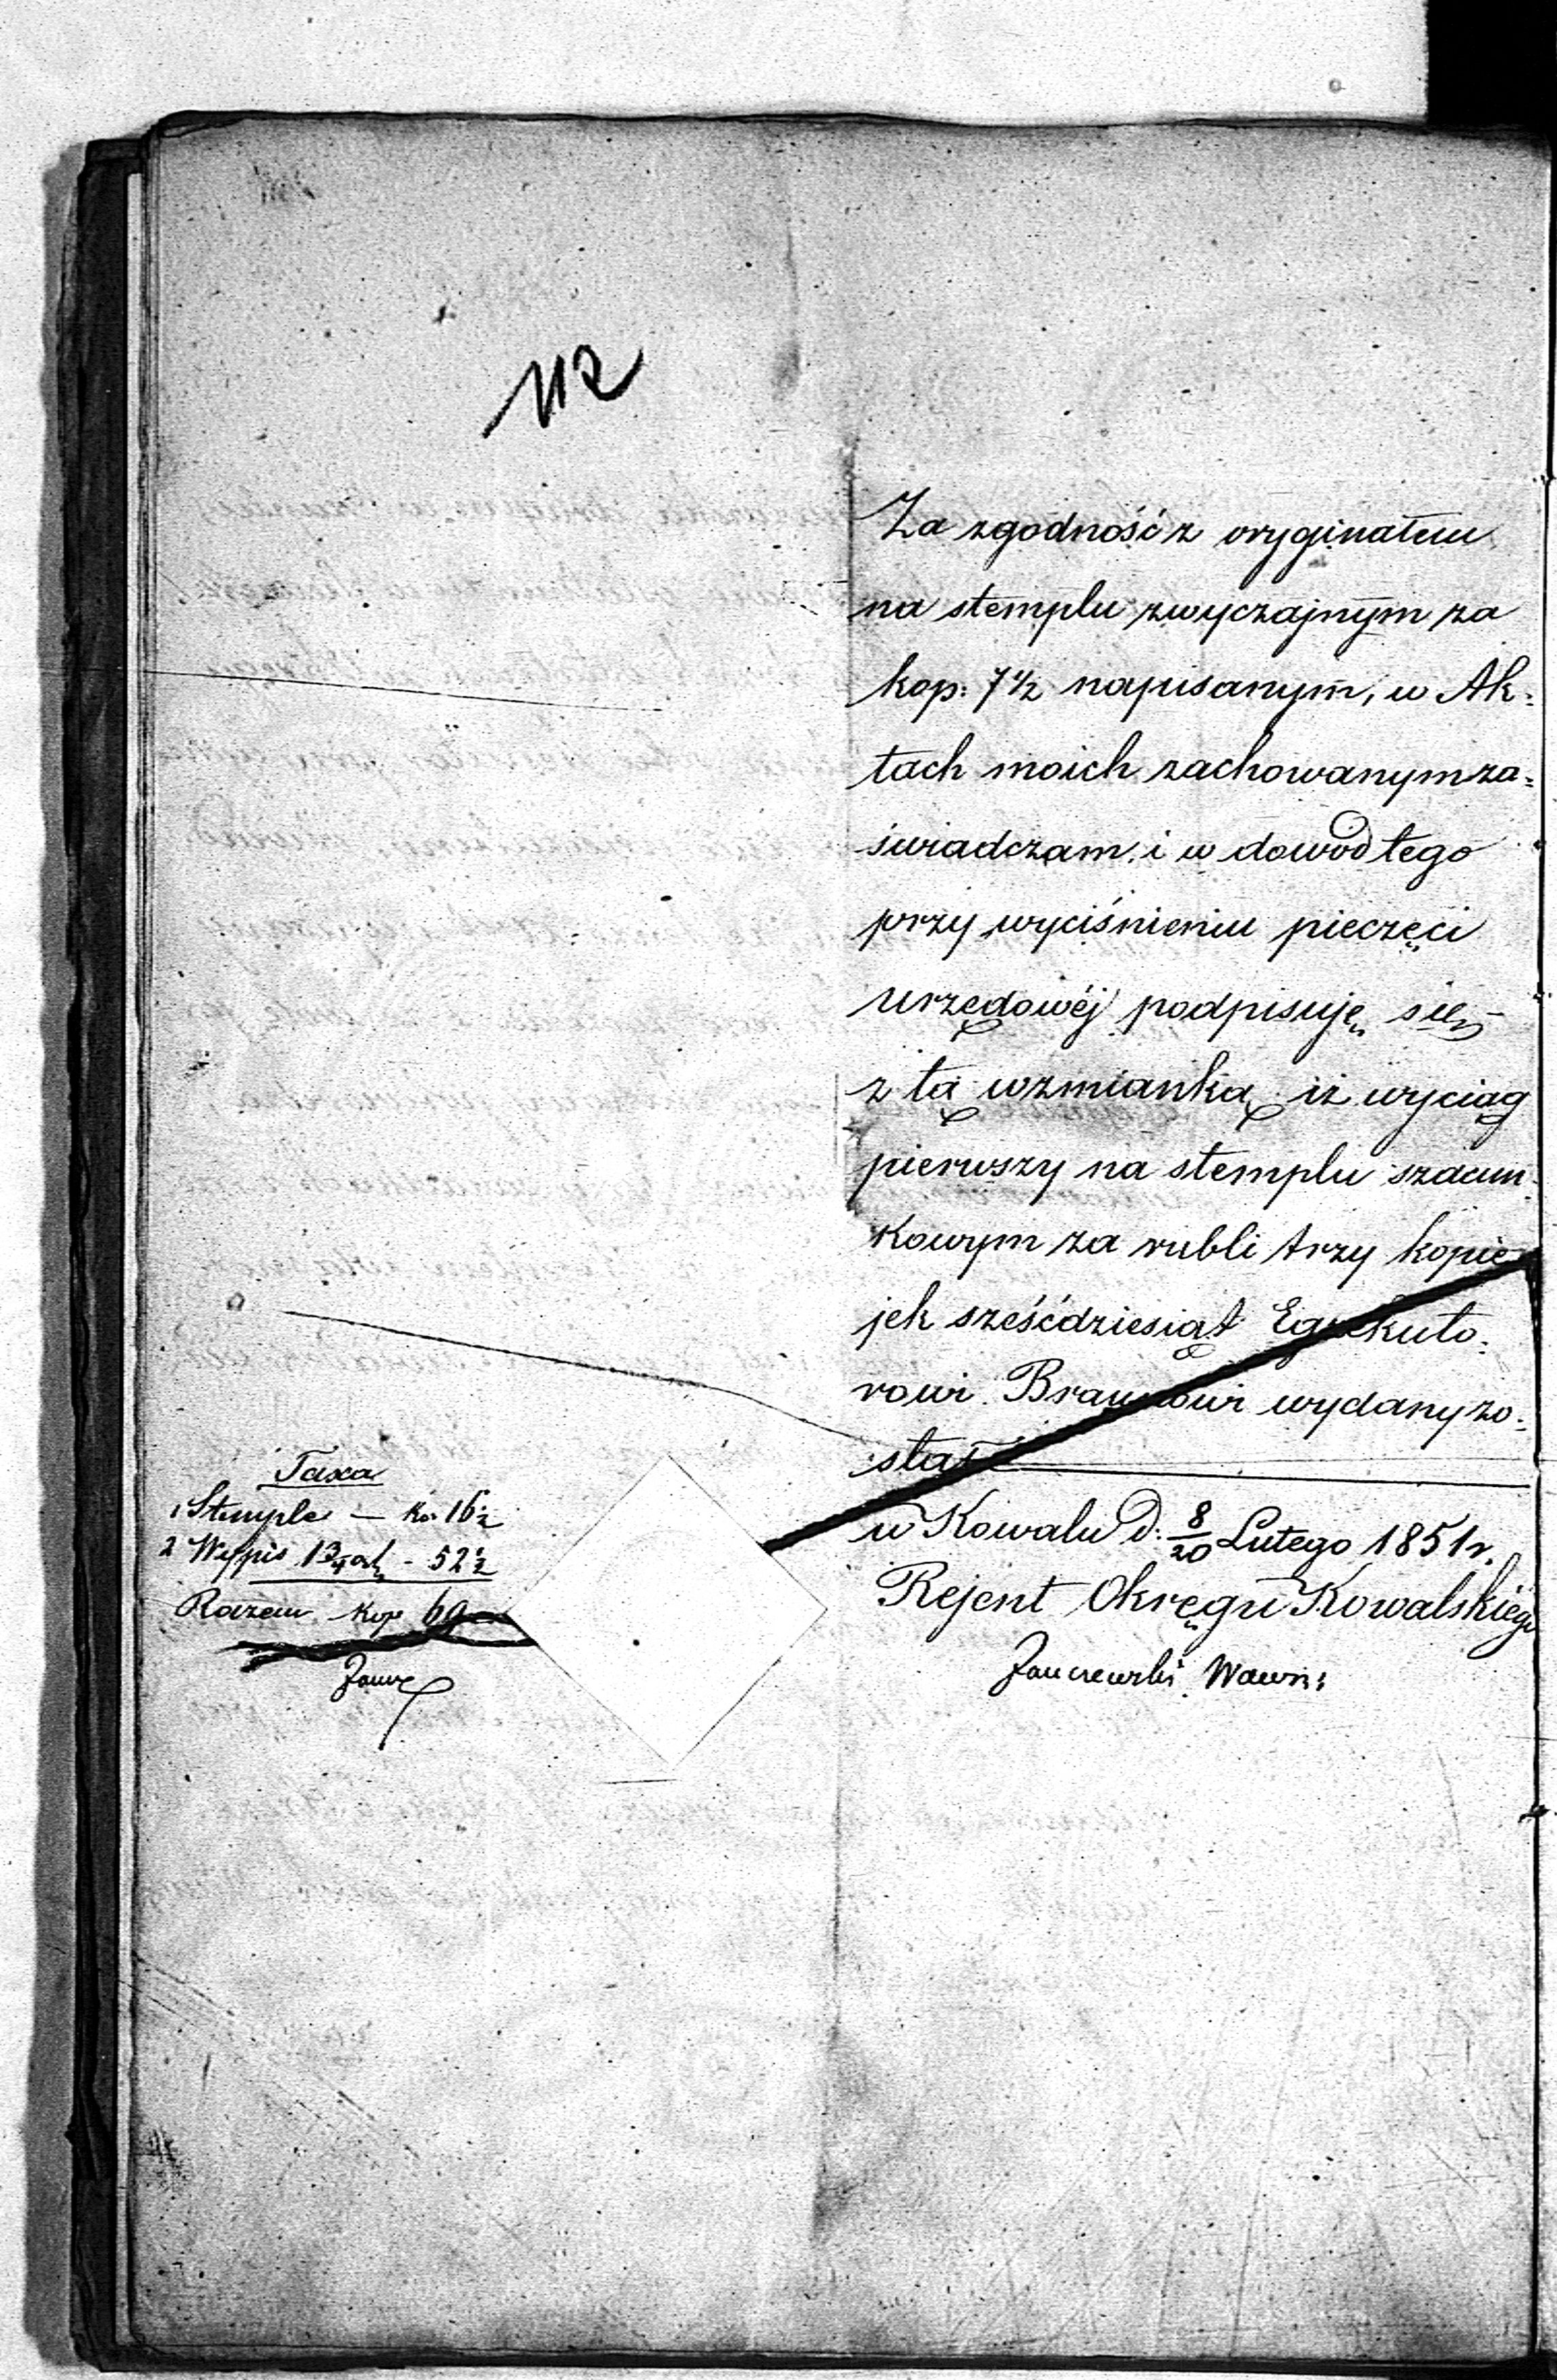 112
Za zgodność z oryginałem
na stemplu zwyczajnym za
kop: 7 1/2 napisanym, w Ak=
tach moich zachowanym za=
świadczam, i w dowód tego
przy wyciśnieniu pieczęci
urzędowéj podpisuję się
z tą wzmianką, iż wyciąg
pierwszy na stemplu szacun=
kowym za rubli trzy kopie
jek sześćdziesiąt Egzekuto=
rowi Braunowi wydany zo=
stał
w Kowalu D: 8/20 Lutego 1851 r.
Rejent Okręgu Kowalskiego
Taxa
1 Stemple — Ko: 16 1/2
2 Wypis - 52 1/2
Razem Kop 69